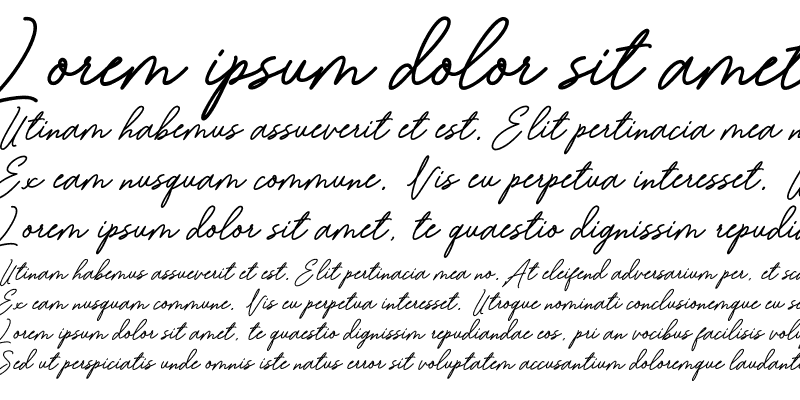 Lorem ipsum dolor sit amet
Utinam habemus assueverit et est. Elit pertinacia mea n
Ex eam nusquam commune. Vis eu perpetua interesset.
Lorem ipsum dolor sit amet, te quaestio dignissim repudia
Utinam habemus assueverit et est. Elit pertinacia mea no. At eleifend adversarium per, et sc
Ex eam nusquam commune. Vis eu perpetua interesset. Utroque nominati conclusionemque eu se
Lorem ipsum dolor sit amet, te quaestio dignissim repudiandae eos, pri an vocibus facilisis volu
Sed ut perspiciatis unde omnis iste natus error sit voluptatem accusantium doloremque laudant